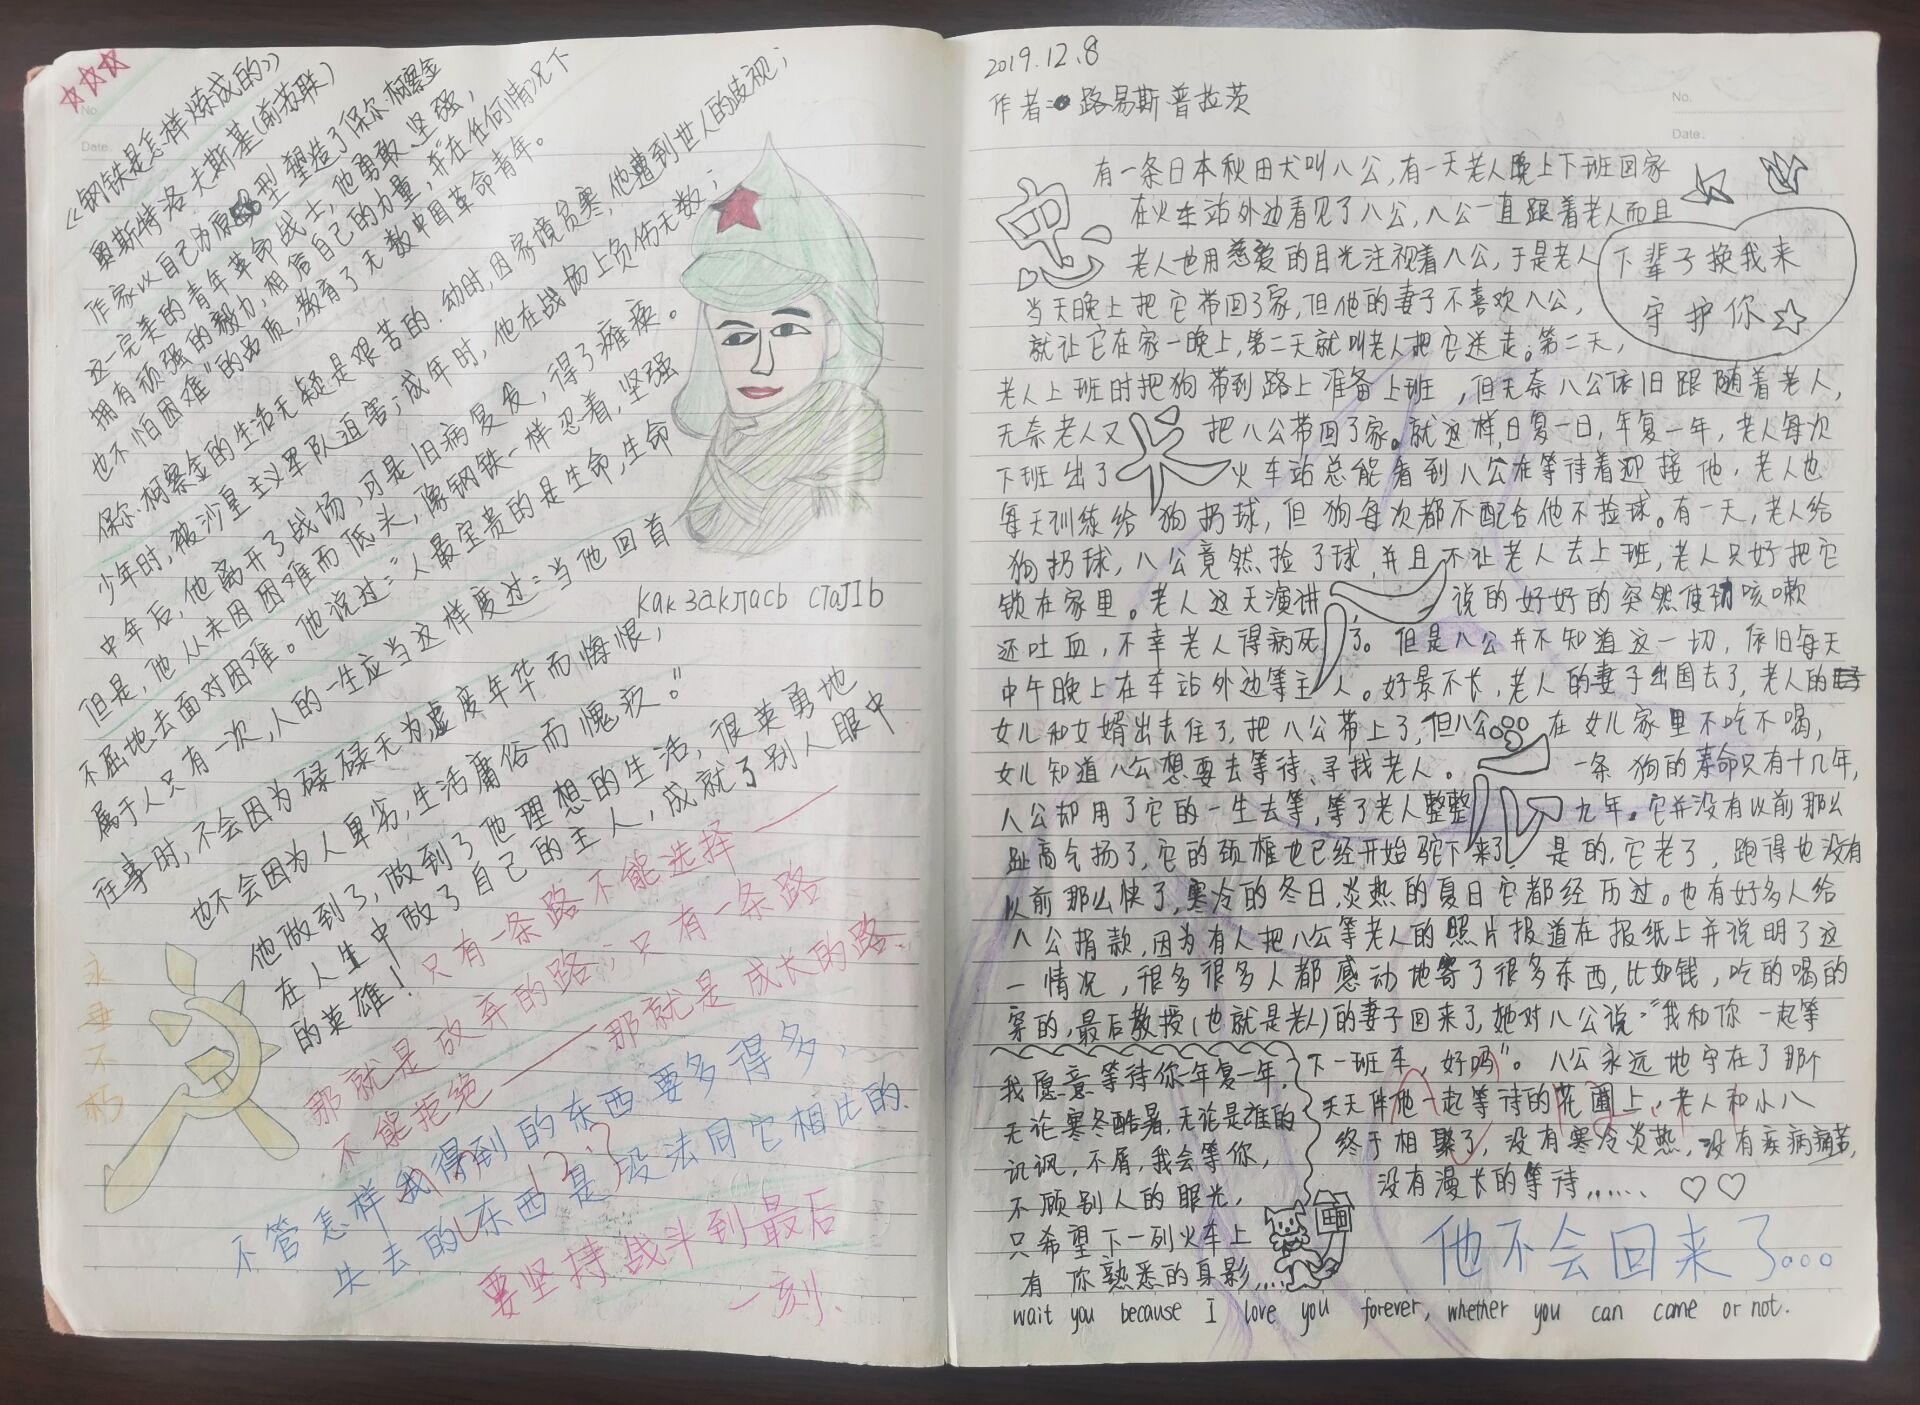 《钢铁是怎样炼成的》
奥斯特洛夫斯基(前苏联)
作家以自己为原型塑造了保尔·柯察金
这一完美的青年革命战士,他勇敢、坚强,
拥有顽强的毅力,相信自己的力量,并"在任何情况下
也不怕困难"的品质,教育了无数中国革命青年。
保尔·柯察金的生活无疑是艰苦的.幼时,因家境贫寒,他遭到世人的歧视;
少年时,被沙皇主义军队迫害;成年时,他在战场上负伤无数;
中年后,他离开了战场,可是旧病复发,得了瘫痪。
但是,他从未因困难而低头,像钢铁一样忍着,坚强
不屈地去面对困难。他说过:"人最宝贵的是生命,生命
属于人只有一次,人的一生应当这样度过:当他回首
往事时,不会因为碌碌无为,虚度年华而悔恨,
也不会因为人卑劣,生活庸俗而愧疚。"
他做到了,做到了他理想的生活,很英勇地
在人生中做了自己的主人,成就了别人眼中
的英雄!
как заклась стаJIb
永垂不朽
只有一条路不能选择——
那就是放弃的路;只有一条路
不能拒绝——那就是成长的路.
不管怎样我得到的东西要多得多,
失去的东西是没法同它相比的.
要坚持战斗到最后
一刻.
No.
Date.
2019.12.8
作者:路易斯·普拉茨
No.
Date.
忠犬八公
有一条日本秋田犬叫八公,有一天老人晚上下班回家
在火车站外边看见了八公,八公一直跟着老人而且
老人也用慈爱的目光注视着八公,于是老人
当天晚上把它带回了家,但他的妻子不喜欢八公,
就让它在家一晚上,第二天就叫老人把它送走。第二天,
下辈子换我来
守护你☆
老人上班时把狗带到路上准备上班,但无奈八公依旧跟随着老人,
无奈老人又把八公带回了家。就这样,日复一日,年复一年,老人每次
下班出了火车站总能看到八公在等待着迎接他,老人也
每天训练给狗扔球,但狗每次都不配合他不捡球。有一天,老人给
狗扔球,八公竟然捡了球,并且不让老人去上班,老人只好把它
锁在家里。老人这天演讲说的好好的突然使劲咳嗽
还吐血,不幸老人得病死了。但是八公并不知道这一切,依旧每天
中午晚上在车站外边等主人。好景不长,老人的妻子出国去了,老人的
女儿和女婿出去住了,把八公带上了,但八公在女儿家里不吃不喝,
女儿知道八公想要去等待、寻找老人。一条狗的寿命只有十几年,
八公却用了它的一生去等,等了老人整整九年。它并没有以前那么
趾高气扬了,它的颈椎也已经开始驼下来了是的,它老了,跑得也没有
以前那么快了,寒冷的冬日,炎热的夏日它都经历过。也有好多人给
八公捐款,因为有人把八公等老人的照片报道在报纸上并说明了这
一情况,很多很多人都感动地寄了很多东西,比如钱,吃的喝的
穿的,最后教授(也就是老人)的妻子回来了,她对八公说:"我和你一起等
下一班车,好吗"。八公永远地守在了那个
天天伴他一起等待的花圃上,老人和小八
终于相聚了,没有寒冷炎热,没有疾病痛苦,
没有漫长的等待...... ♡♡
我愿意等待你一年复一年,
无论寒冬酷暑,无论是谁的
讥讽,不屑,我会等你,
不顾别人的眼光,
只希望下一列火车上
有你熟悉的身影....
他不会回来了。。。
wait you because I love you forever, whether you can come or not.